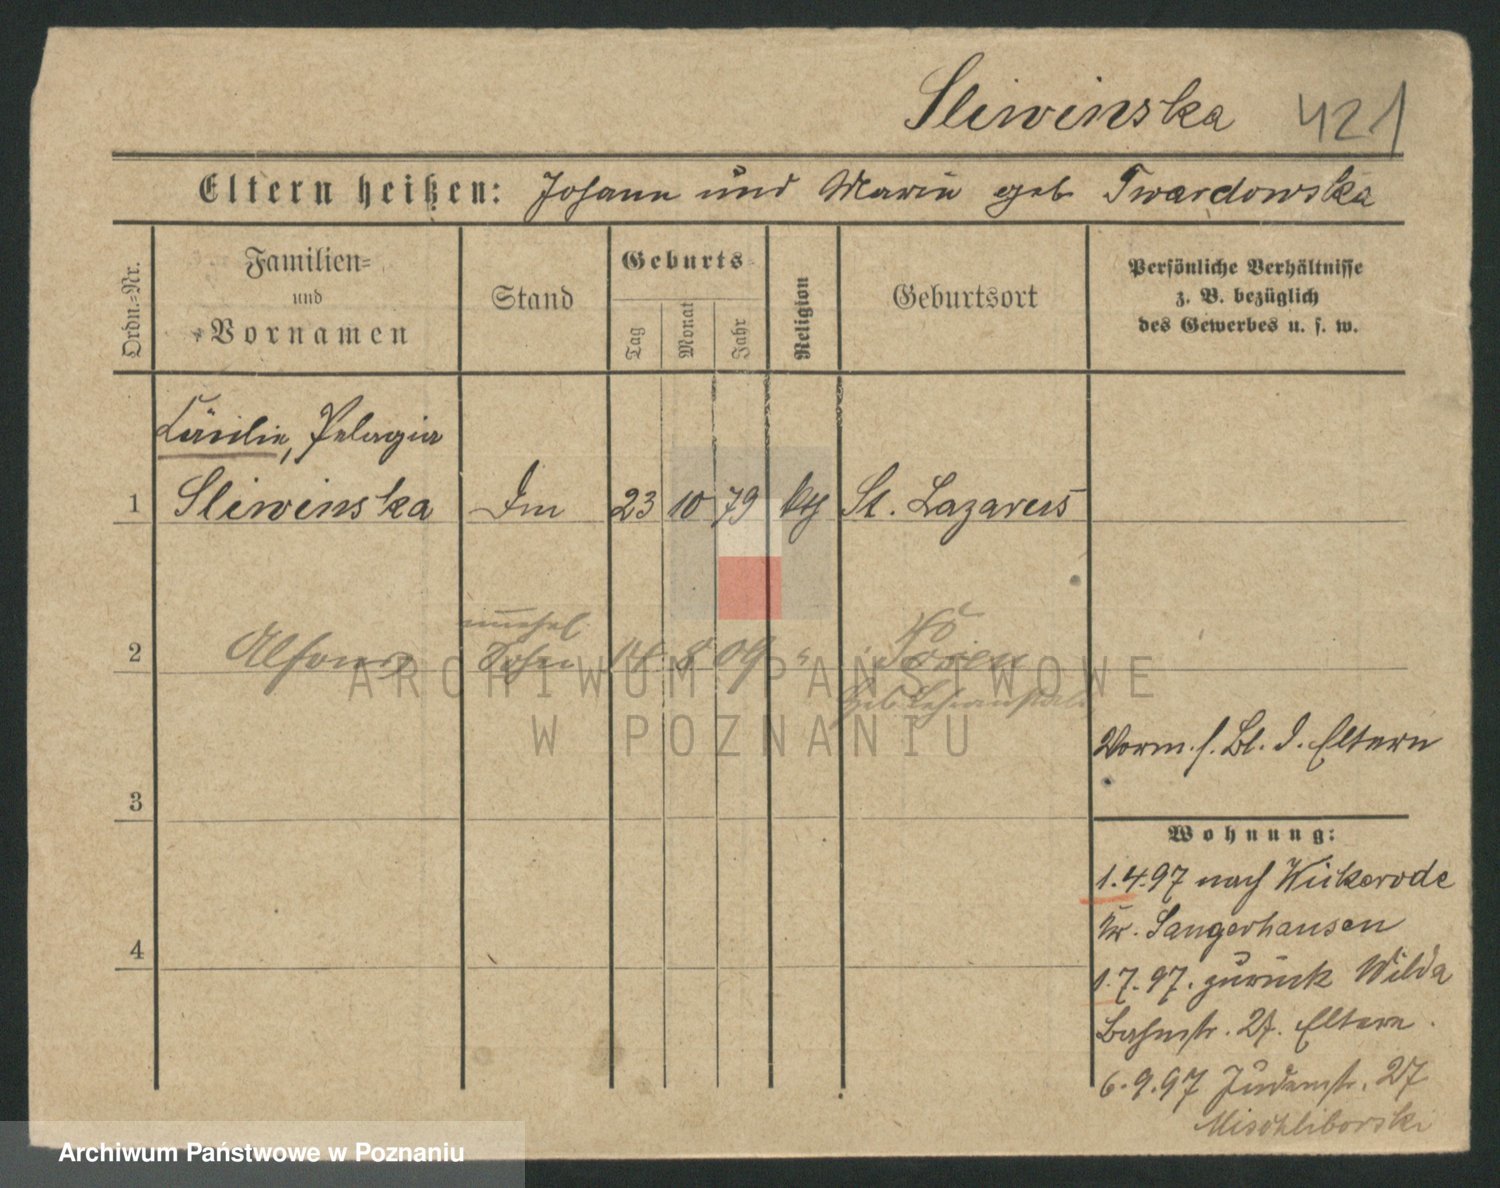 Sliwinska 421
Eltern heißen: Johann und Marie geb Twardowska
Ordn.=Nr.
Familien=
und
Vornamen
Stand
Geburts=
Tag
Monat
Jahr
Religion
Geburtsort
Persönliche Verhältnisse
z. B. bezüglich
des Gewerbes u. s. w.
Cäcilie, Pelagia
1 Sliwinska 23 10 79 kth St. Lazarus
unehel.
2 Alfons Sohn 14 8 09 " Posen
ARCHIWUM PAŃSTWOWE
W POZNANIU
Vorm. s. Bl. d. Eltern
3
Wohnung:
1.4.97 nach Wickerode
Kr. Sangerhausen
4
1.7.97. zurück Wilda
Bahnstr. 27. Eltern.
6.9.97 Judenstr. 27
Mischliborski
Archiwum Państwowe w Poznaniu